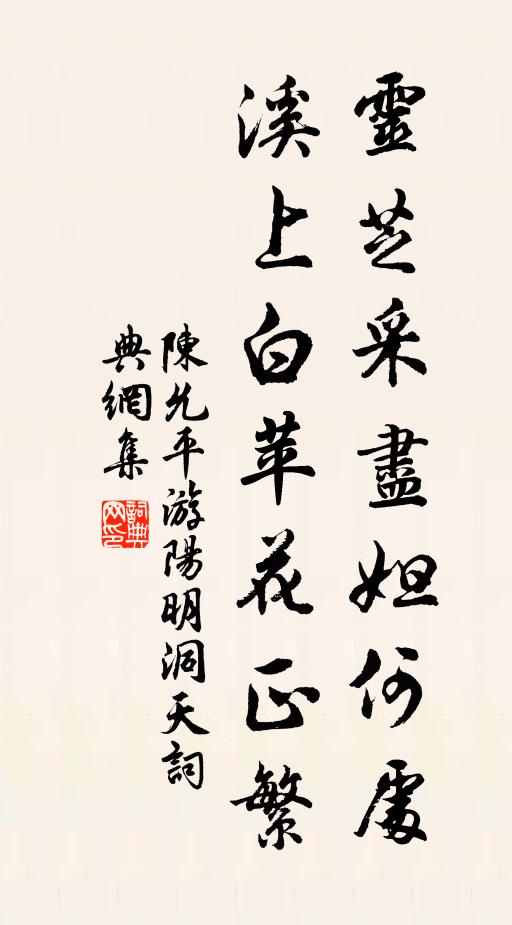 靈芝采盡妲何處
溪上白苹花正繁
陳允平游陽明洞天詞
典網集
詞典网印